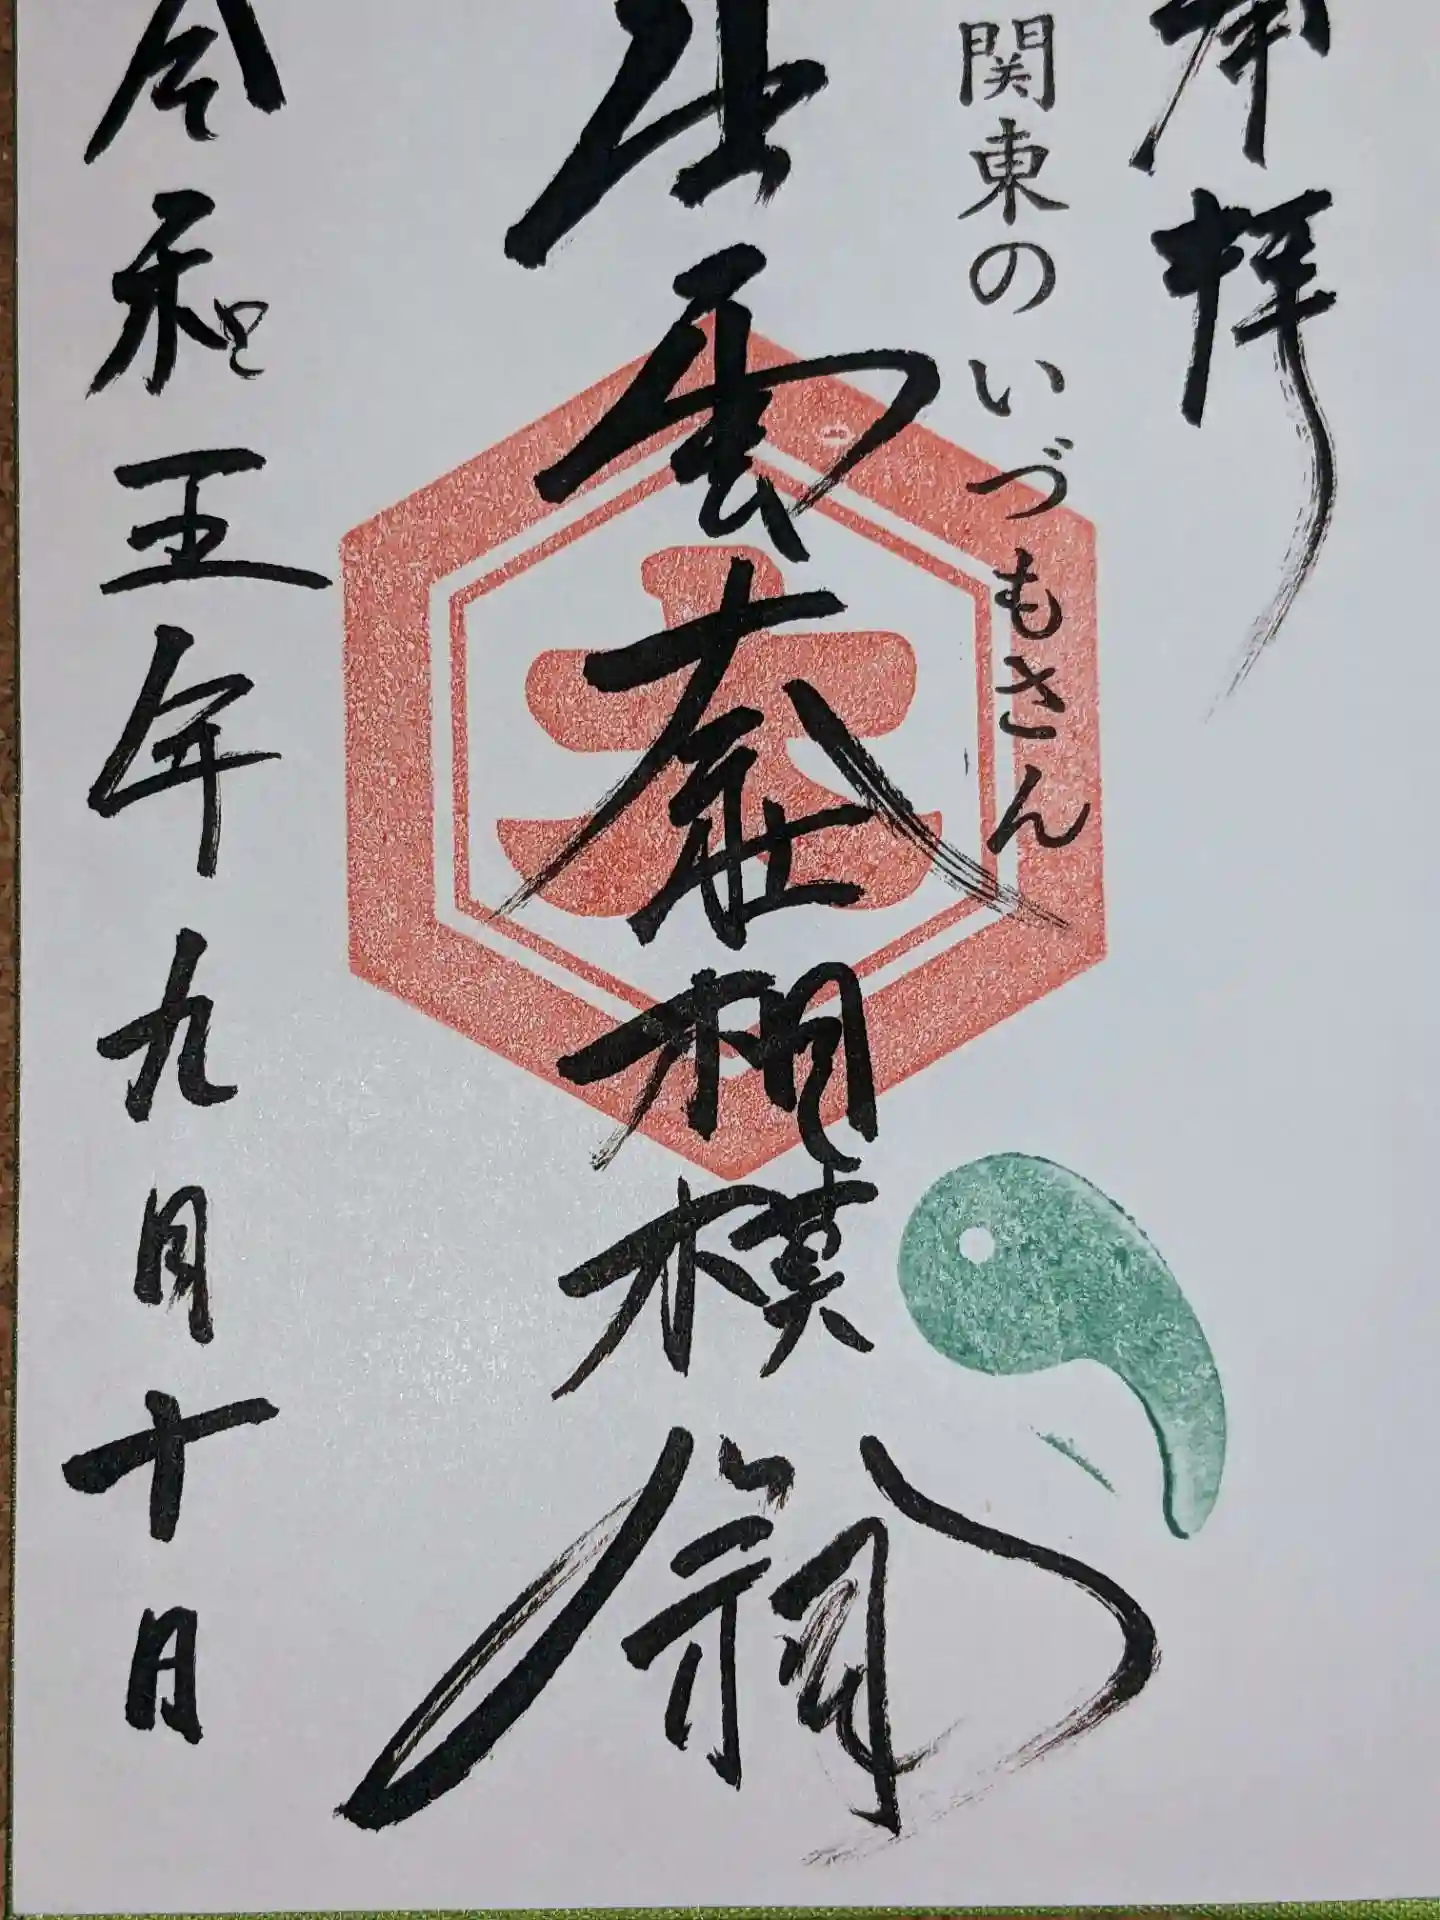 奉拝
関東のいづもさん
出雲大社相模分祠
大
令和五年九月十日